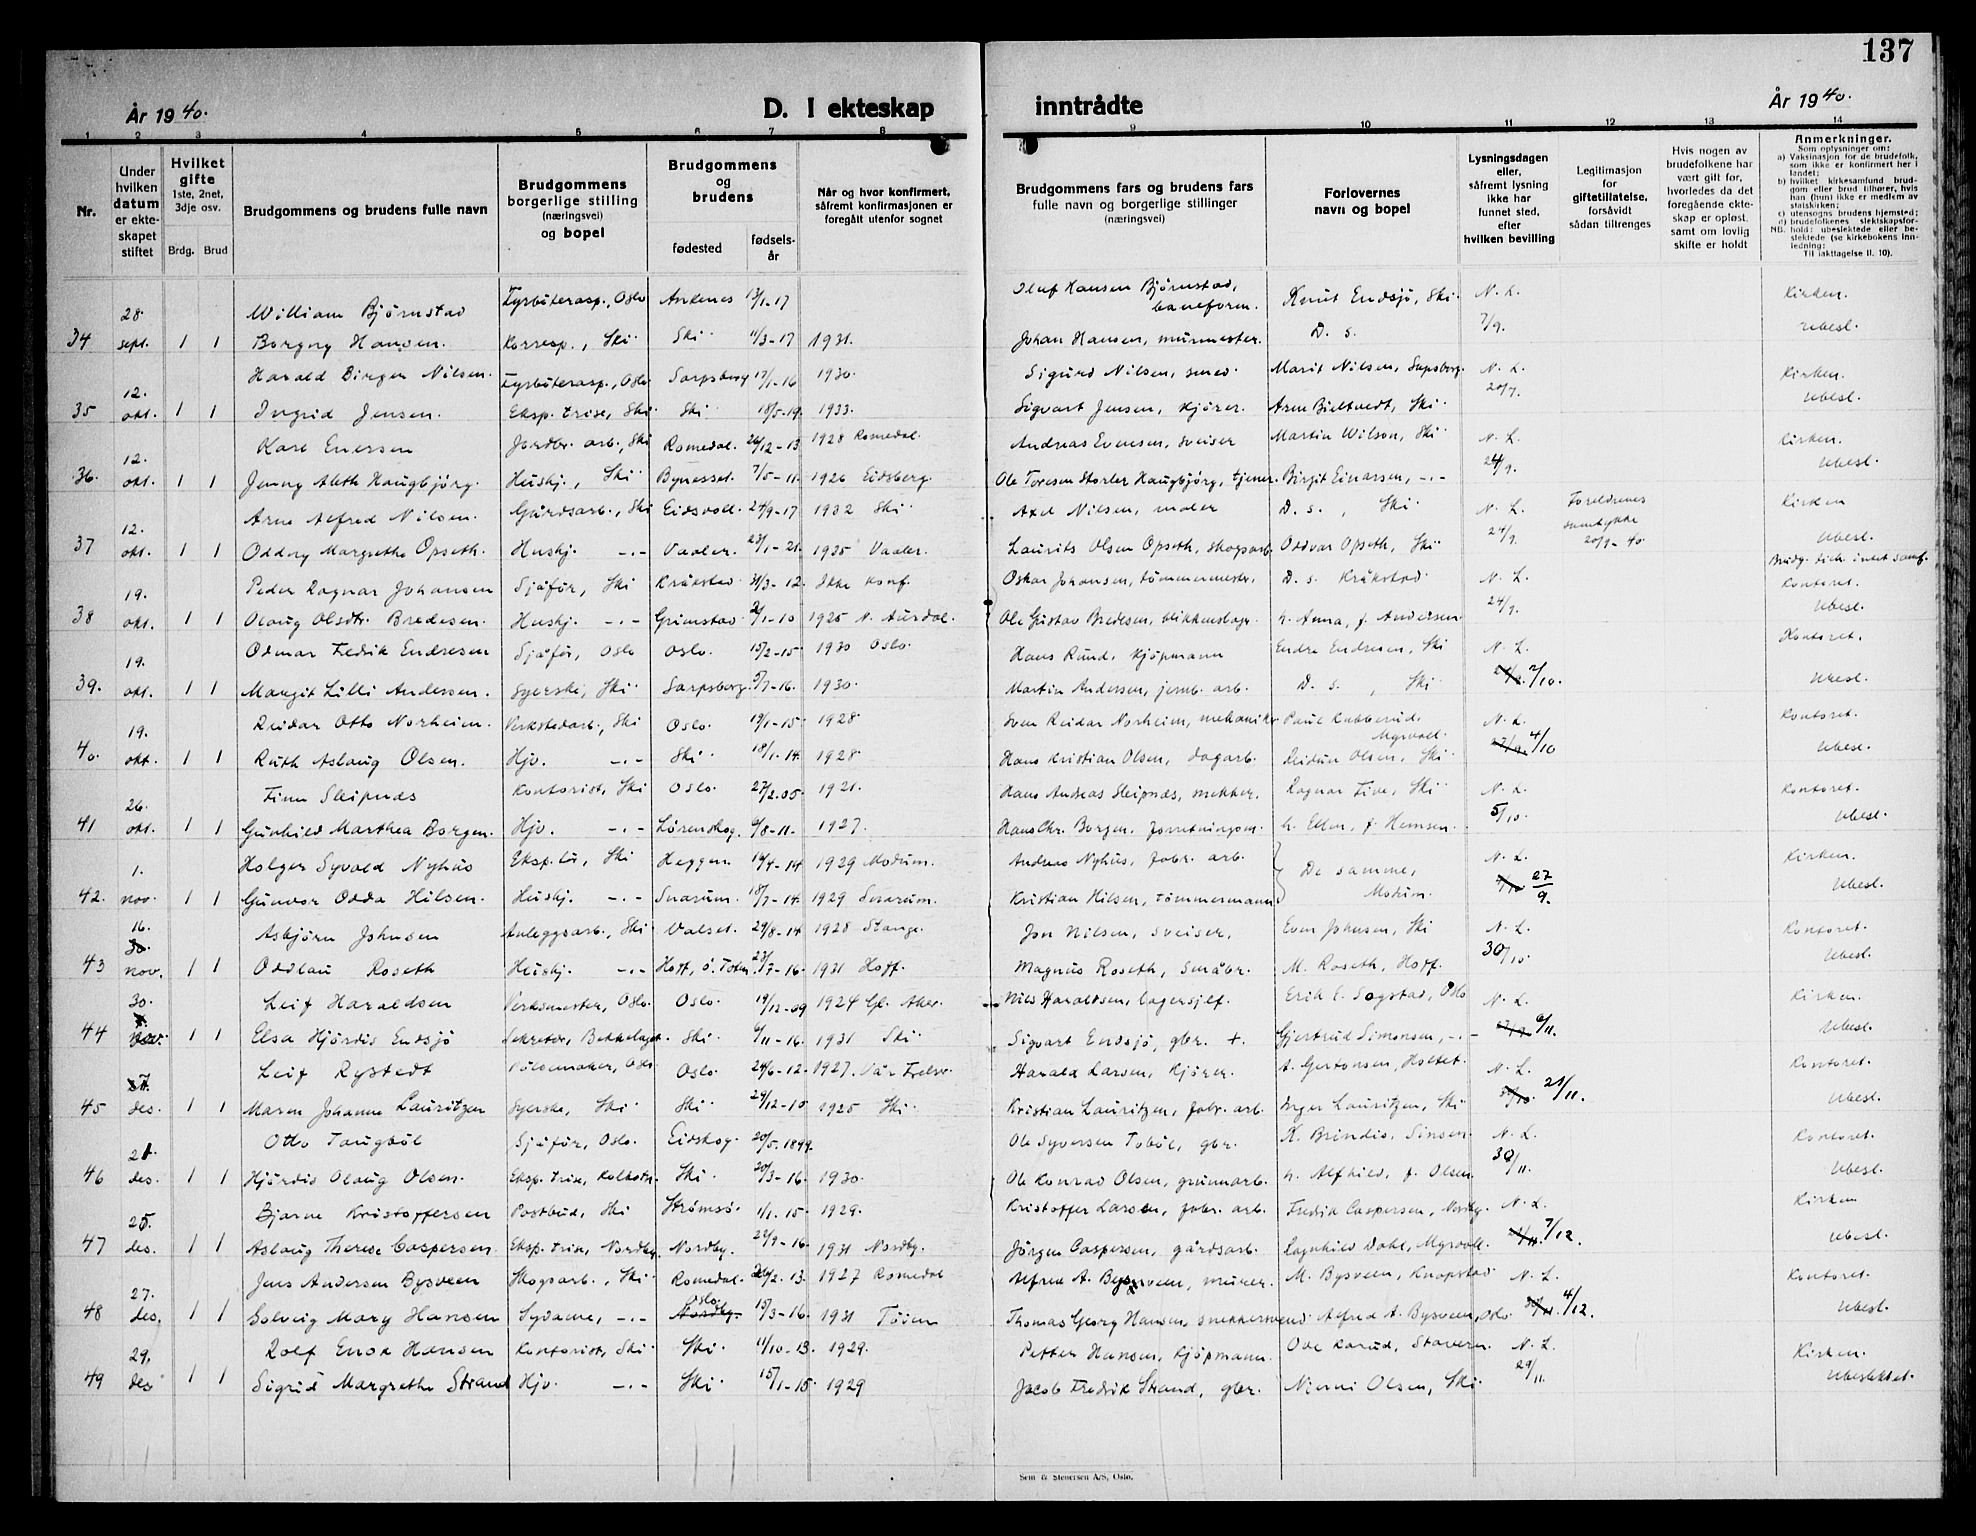 137
År 1940.
D. I ekteskap inntrådte
År 1940.
1 2 3 4 5 6 7 8 9 10 11 12 13 14
Nr.
Under hvilken datum er ekteskapet stiftet
Hvilket gifte 1ste, 2net, 3dje osv.
Brdg. Brud
Brudgommens og brudens fulle navn
Brudgommens borgerlige stilling (næringsvei) og bopel
Brudgommens og brudens
fødested
fødselsår
Når og hvor konfirmert, såfremt konfirmasjonen er foregått utenfor sognet
Brudgommens fars og brudens fars fulle navn og borgerlige stillinger (næringsvei)
Forlovernes navn og bopel
Lysningsdagen eller, såfremt lysning ikke har funnet sted, efter hvilken bevilling
Legitimasjon for giftetillatelse, forsåvidt sådan tiltrenges
Hvis nogen av brudefolkene har vært gift før, hvorledes da det foregående ekteskap er opløst, samt om lovlig skifte er holdt
Anmerkninger.
Som oplysninger om:
a) Vaksinasjon for de brudefolk, som ikke er konfirmert her i landet;
b) hvilket kirkesamfund brudgom eller brud tilhører, hvis han (hun) ikke er medlem av statskirken;
c) utensogns brudens hjemsted;
d) brudefolkenes slektskapsforhold: ubeslektede eller beslektede (se kirkebokens innledning;
NB.
Til iakttagelse II. 10).
28. William Bjørnstad Fyrbøterasp., Oslo Ankenes 13/1-17 Oluf Hansen Bjørnstad, baneform. Knut Endsjø, Ski. N. L. Kirken.
34 sept. 1 1 Borgny Hansen. Korresp., Ski Ski 11/3-17 1931. Johan Hansen, murmester. D. s. 7/9. Ubesl.
12. Harald Birger Nilsen. Fyrbøterasp., Oslo Sarpsborg 17/1-16 1930. Sigurd Nilsen, smed. Marit Nilsen, Sapsborg. N. L. Kirken.
35 okt. 1 1 Ingrid Jensen. Eksp.trise, Ski Ski 18/5-19. 1933. Sigvart Jensen, kjører. Arne Bieltvedt, Ski 20/9. Ubesl.
12. Kåre Enersen Jordbr. arb., Ski Romedal. 26/12-13 1928 Romedal. Andreas Evensen, sveiser Martin Wilson, Ski N. L. Kirken.
36. okt. 1 1 Jenny Aleth Haugbjørg. Hushj., Ski Bynesset. 7/5-11. 1926 Eidsberg. Ole Toresen Storler Haugbjørg, tjener. Birgit Einarsen, -.- 24/9. Ubesl.
12. Arne Alfred Nilsen. Gårdsarb., Ski Eidsvoll. 24/9-17 1932 Ski Axel Nilsen, maler D. s., Ski N. L. Foreldrenes Kirken
37 okt. 1 1 Oddny Margrethe Opseth. Hushj. -.- Vaaler. 23/1-21. 1935 Vaaler. Laurits Olsen Opseth, skogsarb. Oddvar Opseth, Ski 24/9. samtykke 20/9-40. Ubesl.
19. Peder Ragnar Johansen Sjåfør, Ski Kråkstad 31/3-12. Ikke konf. Oskar Johansen, tømmermestr. D. s. Kråkstad. N. L. Brudg. tilh. intet samf. Kontoret.
38 okt. 1 1 Olaug Olsdtr. Bredesen. Hushj. -.- Grimstad 2/1-10 1925 N. Aurdal. Ole Gustav Bredesen, blikkenslagr. h. Anna, f. Andersen 24/9. Ubesl.
19. Odmar Fredrik Endresen Sjåfør, Oslo Oslo. 15/2-15 1930 Oslo. Hans Rund, kjøpmann Endre Endresen, Ski N. L. Kontoret.
39. okt. 1 1 Margit Lilli Andersen. Syerske, Ski Sarpsborg. 5/7-16. 1930. Martin Andersen, jernb. arb. D. s., Ski 2/10. Ubesl.
19. Reidar Otto Norheim. Verkstedarb., Ski Oslo. 19/1-15 1928 Sven Reidar Norheim, mekanikr Paul Kubberud, Myrvoll. N. L. Kontoret.
40. okt. 1 1 Ruth Aslaug Olsen. Hjv. -.- Ski 18/1-14. 1928. Hans Kristian Olsen, dagarb. Reidun Olsen, Ski 4/10 Ubesl.
26. Finn Sleipnæs Kontorist, Ski Oslo 27/2.05. 1921. Hans Andreas Sleipnæs, snekker. Ragnar Five, Ski N. L. Kontoret.
41 okt. 1 1 Gunhild Marthea Borgen. Hjv. -.- Lørenskog. 6/8-11. 1927. Hans Chr. Borgen, forretningsm. h. Ellen, f. Hemsen. 5/10. Ubesl.
1. Holger Syvald Nyhus Eksp.bü, Ski Heggen. 14/4-14 1929 Modum. Andreas Nyhus, fabr. arb. De samme, N. L. Kirken.
42. nov. 1 1 Gunvor Odda Hilsen. Hushj. -.- Snarum. 18/7-14. 1929 Snarum. Kristian Hilsen, tømmermann Modum. 27/9. Ubesl.
16. Asbjørn Johnsen Anleggsarb., Ski Valset. 29/8-14 1928 Stange. Jon Nilsen, sveiser, Even Johnsen, Ski N. L. Kontoret.
43 nov. 1 1 Oddlau Roseth Hushj. -.- Hoff, ö. Toten. 23/7-16. 1931 Hoff. Magnus Roseth, småbr. M. Roseth, Hoff. 30/10. Ubesl.
30. Leif Haraldsen Verksmester, Oslo. Oslo. 19/12-09 1924 Gl. Aker. Nils Haraldsen, lagersjef. Erik E. Sogstad, Oslo N. L. Kirken.
44 nov. 1 1 Elsa Hjørdis Endsjø Sekretær, Bekkelaget. Ski. 6/11-16. 1931 Ski Sigvart Endsjø, gbr. +. Gjertrud Simonsen, -.- 6/11. Ubesl.
7. Leif Rystedt Pølsemaker, Oslo Oslo. 24/6-12. 1927. Vår Frelse. Harald Larsen, kjører. A. Gertonsen, Holtet. N. L. Kontoret.
45 des. 1 1 Maren Johanne Lauritzen Syerske, Ski Ski 24/12-10 1925 Ski Kristian Lauritzen, fabr. arb. Inger Lauritzen, Ski 21/11. Ubesl.
21. Otto Taugbøl Sjåfør, Oslo. Eidskog. 20/5.1899. Ole Syversen Tobøl, gbr. K. Brindis, Sinsen. N. L. Kontoret.
46 des. 1 1 Hjørdis Olaug Olsen. Eksp.trise, Kolbotn. Ski. 20/3-16. 1930. Ole Konrad Olsen, grunnarb. h. Alfhild, f. Olsen 30/11. Ubesl.
25. Bjarne Kristoffersen Postbud, Ski Strømsø. 1/1.15. 1929. Kristoffer Larsen, fabr. arb. Fredrik Caspersen, Nordby. N. L. Kirken
47 des. 1 1 Aslaug Therese Caspersen. Eksp.trise, Nordby. Nordby. 22/9-16. 1931 Nordby. Jørgen Caspersen, gårdsarb. Ragnhild Dahl, Myrvoll. 7/12. Ubesl.
27. Jens Andersen Bysveen Skogsarb., Ski Romedal. 26/2.13. 1927 Romedal Alfred A. Bysveen, murer. M. Bysveen, Knapstad N. L. Kontoret.
48 des. 1 1 Solveig Mary Hansen Sydame, -.- Oslo. Nordby. 15/3-16. 1931 Tøien Thomas Georg Hansen, snekkersvend Alfred A. Bysveen, Oslo 4/12. Ubesl.
29. Rolf Enok Hansen Kontorist, Ski Ski. 11/10-13. 1929. Petter Hansen, kjøpmann. Ove Rørud, Stavern. N. L. Kirken.
49 des 1 1 Sigrid Margrethe Strand Hjv. -.- Ski 15/1-15. 1929 Jacob Fredrik Strand, gbr. Nunni Olsen, Ski 29/11. Ubeslektet.
Sem & Stenersen A/S, Oslo.